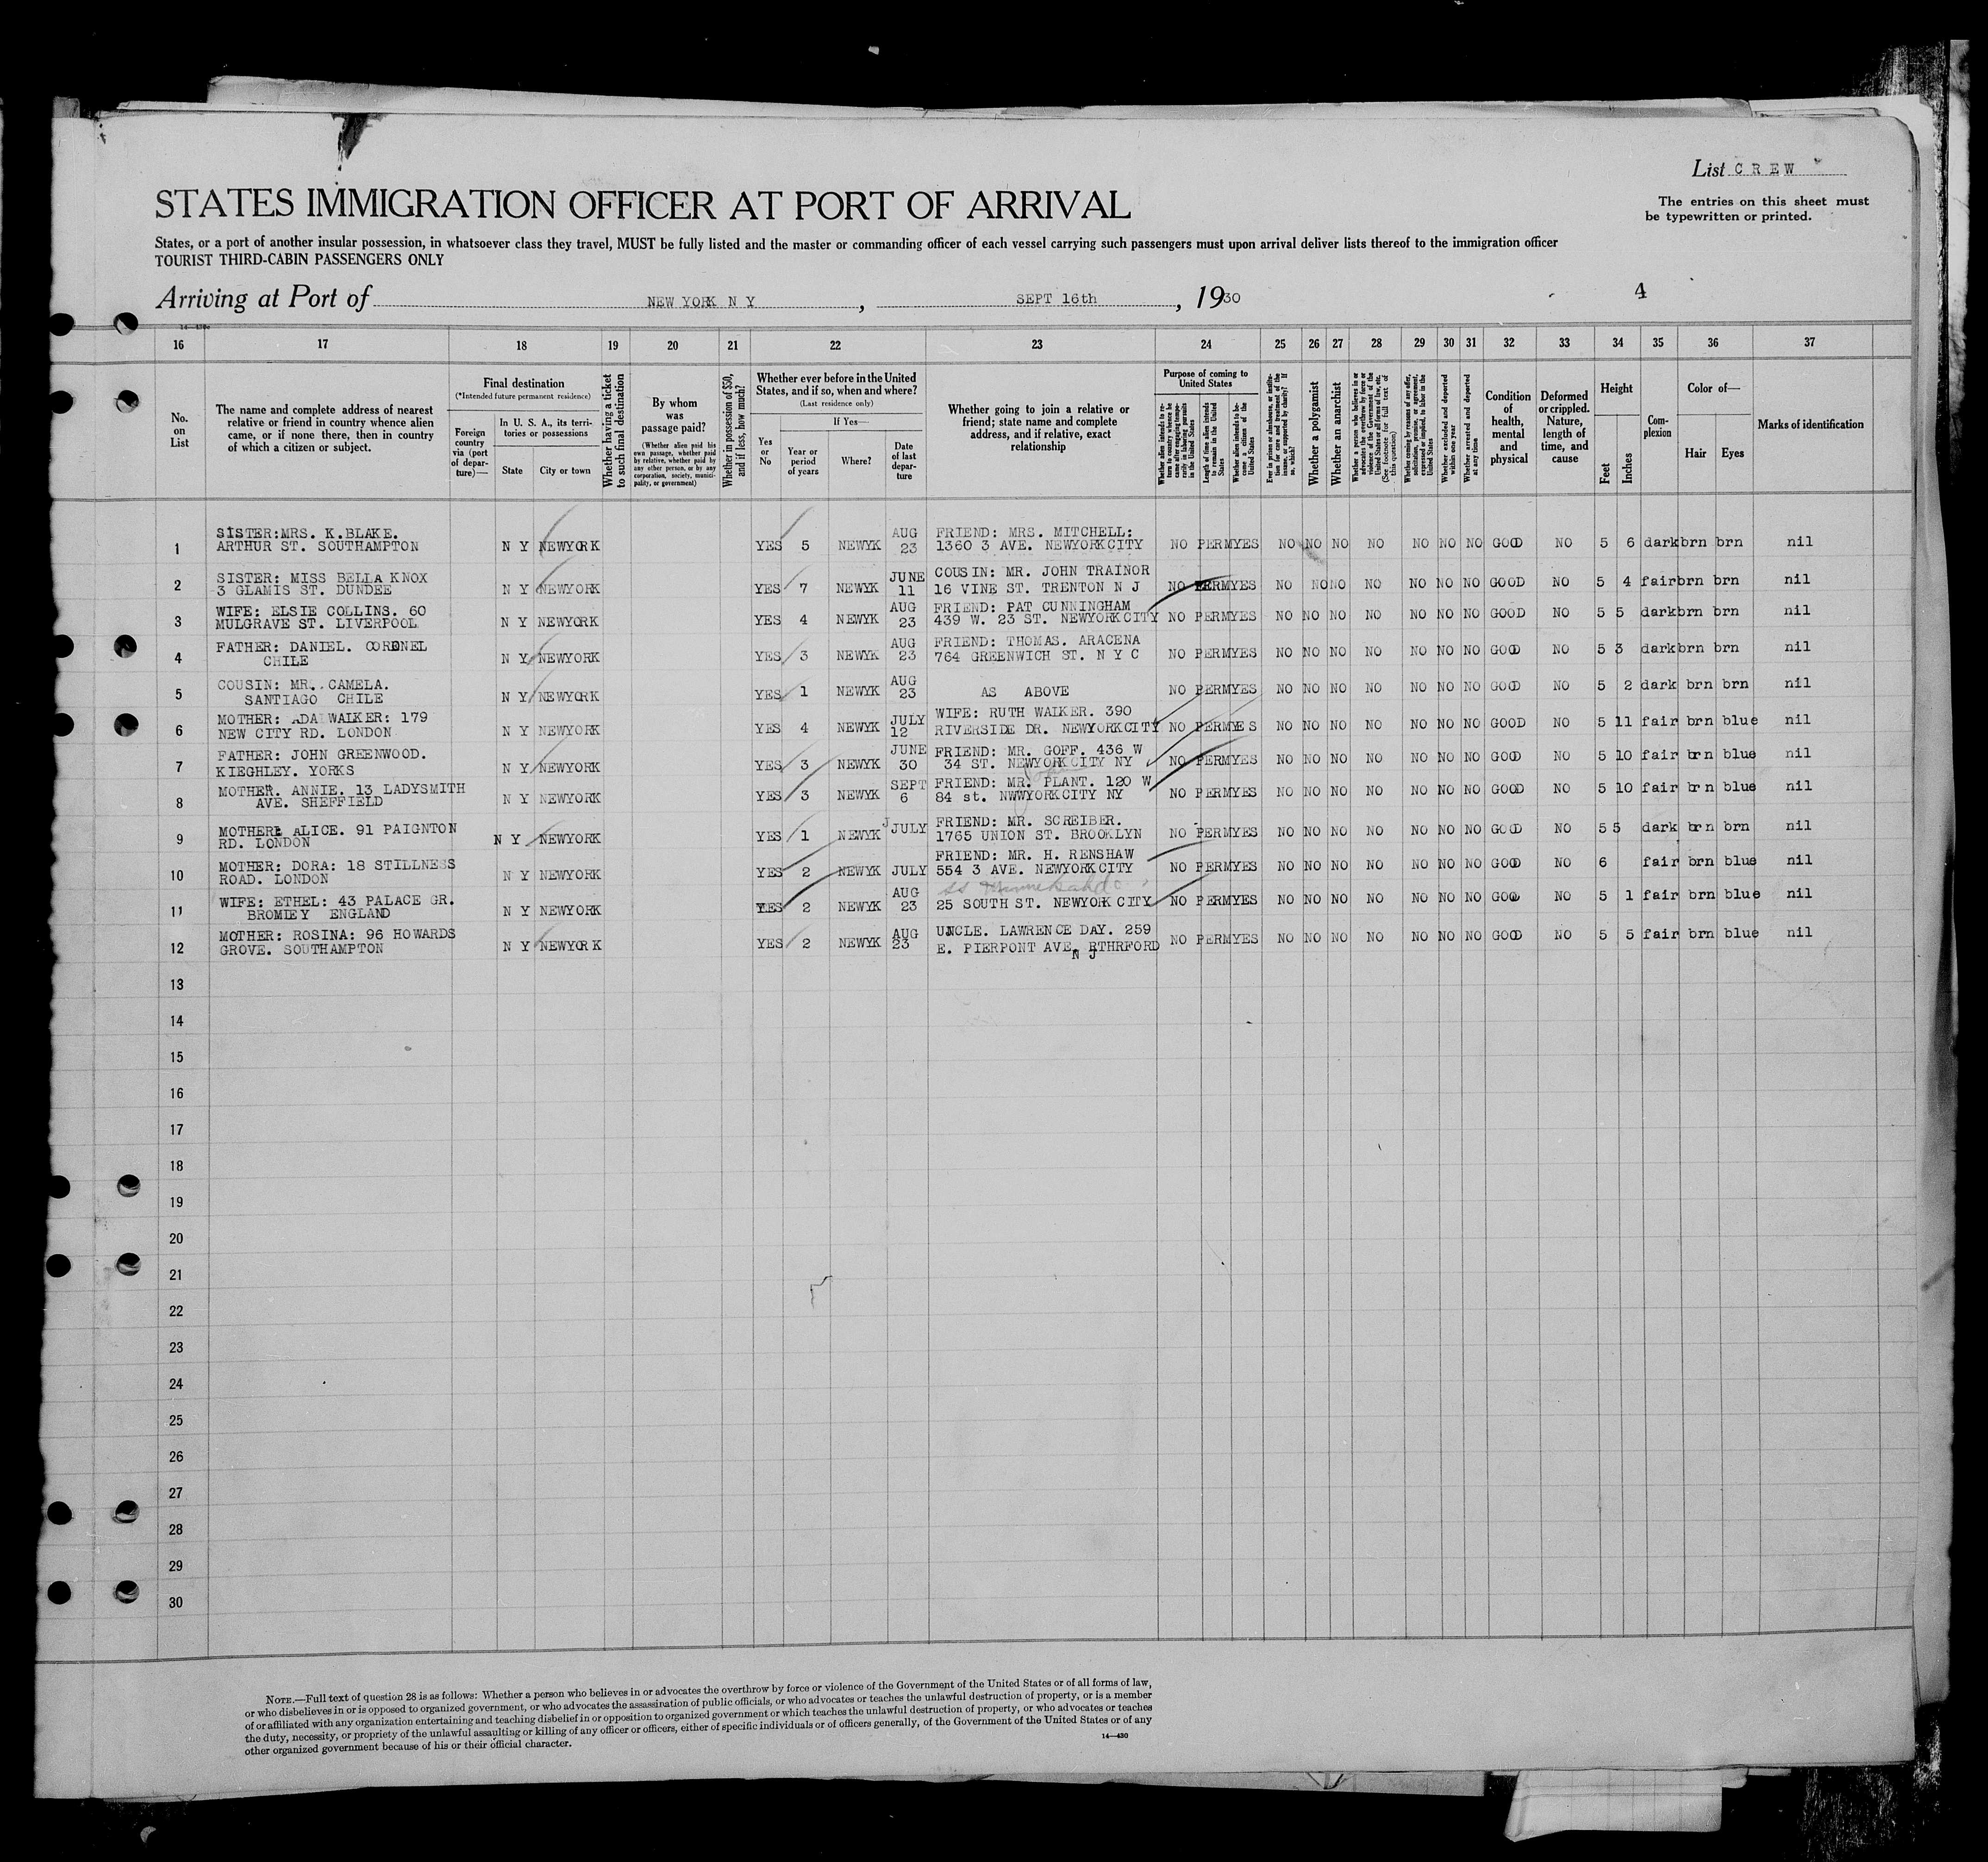 List CREW
STATES IMMIGRATION OFFICER AT PORT OF ARRIVAL
The entries on this sheet must
be typewritten or printed.
States, or a port of another insular possession, in whatsoever class they travel, MUST be fully listed and the master or commanding officer of each vessel carrying such passengers must upon arrival deliver lists thereof to the immigration officer
TOURIST THIRD-CABIN PASSENGERS ONLY
Arriving at Port of NEW YORK N Y, SEPT 16th, 1930
4
14-430
16 17 18 19 20 21 22 23 24 25 26 27 28 29 30 31 32 33 34 35 36 37
No.
on
List
The name and complete address of nearest
relative or friend in country whence alien
came, or if none there, then in country
of which a citizen or subject.
Final destination
(*Intended future permanent residence)
Foreign
country
via (port
of depar-
ture)—
In U. S. A., its terri-
tories or possessions
State City or town
Whether having a ticket
to such final destination
By whom
was
passage paid?
(Whether alien paid his
own passage, whether paid
by relative, whether paid by
any other person, or by any
corporation, society, munici-
pality, or government)
Whether in possession of $50,
and if less, how much?
Whether ever before in the United
States, and if so, when and where?
(Last residence only)
Yes
or
No
If Yes—
Year or
period
of years
Where?
Date
of last
depar-
ture
Whether going to join a relative or
friend; state name and complete
address, and if relative, exact
relationship
Purpose of coming to
United States
Whether alien intends to re-
turn to country whence he
came after engaging tempo-
rarily in laboring pursuits
in the United States
Length of time alien intends
to remain in the United
States
Whether alien intends to be-
come a citizen of the
United States
Ever in prison or almshouse, or institu-
tion for care and treatment of the
insane, or supported by charity? If
so, which?
Whether a polygamist
Whether an anarchist
Whether a person who believes in or
advocates the overthrow by force or
violence of the Government of the
United States or all forms of law, etc.
(See footnote for full text of
this question)
Whether coming by reasons of any offer,
solicitation, promise, or agreement,
expressed or implied, to labor in the
United States
Whether excluded and deported
within one year
Whether arrested and deported
at any time
Condition
of
health,
mental
and
physical
Deformed
or crippled.
Nature,
length of
time, and
cause
Height
Feet Inches
Com-
plexion
Color of—
Hair Eyes
Marks of identification
SISTER:MRS. K.BLAKE. AUG FRIEND: MRS. MITCHELL:
1 ARTHUR ST. SOUTHAMPTON N Y NEWYORK YES 5 NEWYK 23 1360 3 AVE. NEWYORKCITY NO PERM YES NO NO NO NO NO NO NO GOOD NO 5 6 dark brn brn nil
SISTER: MISS BELLA KNOX JUNE COUSIN: MR. JOHN TRAINOR
2 3 GLAMIS ST. DUNDEE N Y NEWYORK YES 7 NEWYK 11 16 VINE ST. TRENTON N J NO PERM YES NO NO NO NO NO NO NO GOOD NO 5 4 fair brn brn nil
WIFE: ELSIE COLLINS. 60 AUG FRIEND: PAT CUNNINGHAM
3 MULGRAVE ST. LIVERPOOL N Y NEWYORK YES 4 NEWYK 23 439 W. 23 ST. NEWYORKCITY NO PERM YES NO NO NO NO NO NO NO GOOD NO 5 5 dark brn brn nil
FATHER: DANIEL. CORONEL AUG FRIEND: THOMAS. ARACENA
4 CHILE N Y NEWYORK YES 3 NEWYK 23 764 GREENWICH ST. N Y C NO PERM YES NO NO NO NO NO NO NO GOOD NO 5 3 dark brn brn nil
COUSIN: MR. CAMELA. AUG
5 SANTIAGO CHILE N Y NEWYORK YES 1 NEWYK 23 AS ABOVE NO PERM YES NO NO NO NO NO NO NO GOOD NO 5 2 dark brn brn nil
MOTHER: ADA WALKER: 179 JULY WIFE: RUTH WALKER. 390
6 NEW CITY RD. LONDON N Y NEWYORK YES 4 NEWYK 12 RIVERSIDE DR. NEWYORKCITY NO PERM YES NO NO NO NO NO NO NO GOOD NO 5 11 fair brn blue nil
FATHER: JOHN GREENWOOD. JUNE FRIEND: MR. GOFF. 436 W
7 KIEGHLEY. YORKS N Y NEWYORK YES 3 NEWYK 30 34 ST. NEWYORKCITY NY NO PERM YES NO NO NO NO NO NO NO GOOD NO 5 10 fair brn blue nil
MOTHER. ANNIE. 13 LADYSMITH SEPT FRIEND: MR. PLANT. 120 W
8 AVE. SHEFFIELD N Y NEWYORK YES 3 NEWYK 6 84 st. NWWYORKCITY NY NO PERM YES NO NO NO NO NO NO NO GOOD NO 5 10 fair brn blue nil
MOTHER: ALICE. 91 PAIGNTON JULY FRIEND: MR. SCREIBER.
9 RD. LONDON N Y NEWYORK YES 1 NEWYK 1765 UNION ST. BROOKLYN NO PERM YES NO NO NO NO NO NO NO GOOD NO 5 5 dark brn brn nil
MOTHER: DORA: 18 STILLNESS FRIEND: MR. H. RENSHAW
10 ROAD. LONDON N Y NEWYORK YES 2 NEWYK JULY 554 3 AVE. NEWYORKCITY NO PERM YES NO NO NO NO NO NO NO GOOD NO 6 fair brn blue nil
WIFE: ETHEL: 43 PALACE GR. AUG SS
11 BROMLEY ENGLAND N Y NEWYORK YES 2 NEWYK 23 25 SOUTH ST. NEWYORK CITY NO PERM YES NO NO NO NO NO NO NO GOOD NO 5 1 fair brn blue nil
MOTHER: ROSINA: 96 HOWARDS AUG UNCLE. LAWRENCE DAY. 259
12 GROVE. SOUTHAMPTON N Y NEWYORK YES 2 NEWYK 23 E. PIERPONT AVE. RTHRFORD NO PERM YES NO NO NO NO NO NO NO GOOD NO 5 5 fair brn blue nil
N J
13
14
15
16
17
18
19
20
21
22
23
24
25
26
27
28
29
30
NOTE.—Full text of question 28 is as follows: Whether a person who believes in or advocates the overthrow by force or violence of the Government of the United States or of all forms of law,
or who disbelieves in or is opposed to organized government, or who advocates the assassination of public officials, or who advocates or teaches the unlawful destruction of property, or is a member
of or affiliated with any organization entertaining and teaching disbelief in or opposition to organized government or which teaches the unlawful destruction of property, or who advocates or teaches
the duty, necessity, or propriety of the unlawful assaulting or killing of any officer or officers, either of specific individuals or of officers generally, of the Government of the United States or of any
other organized government because of his or their official character.
14-430